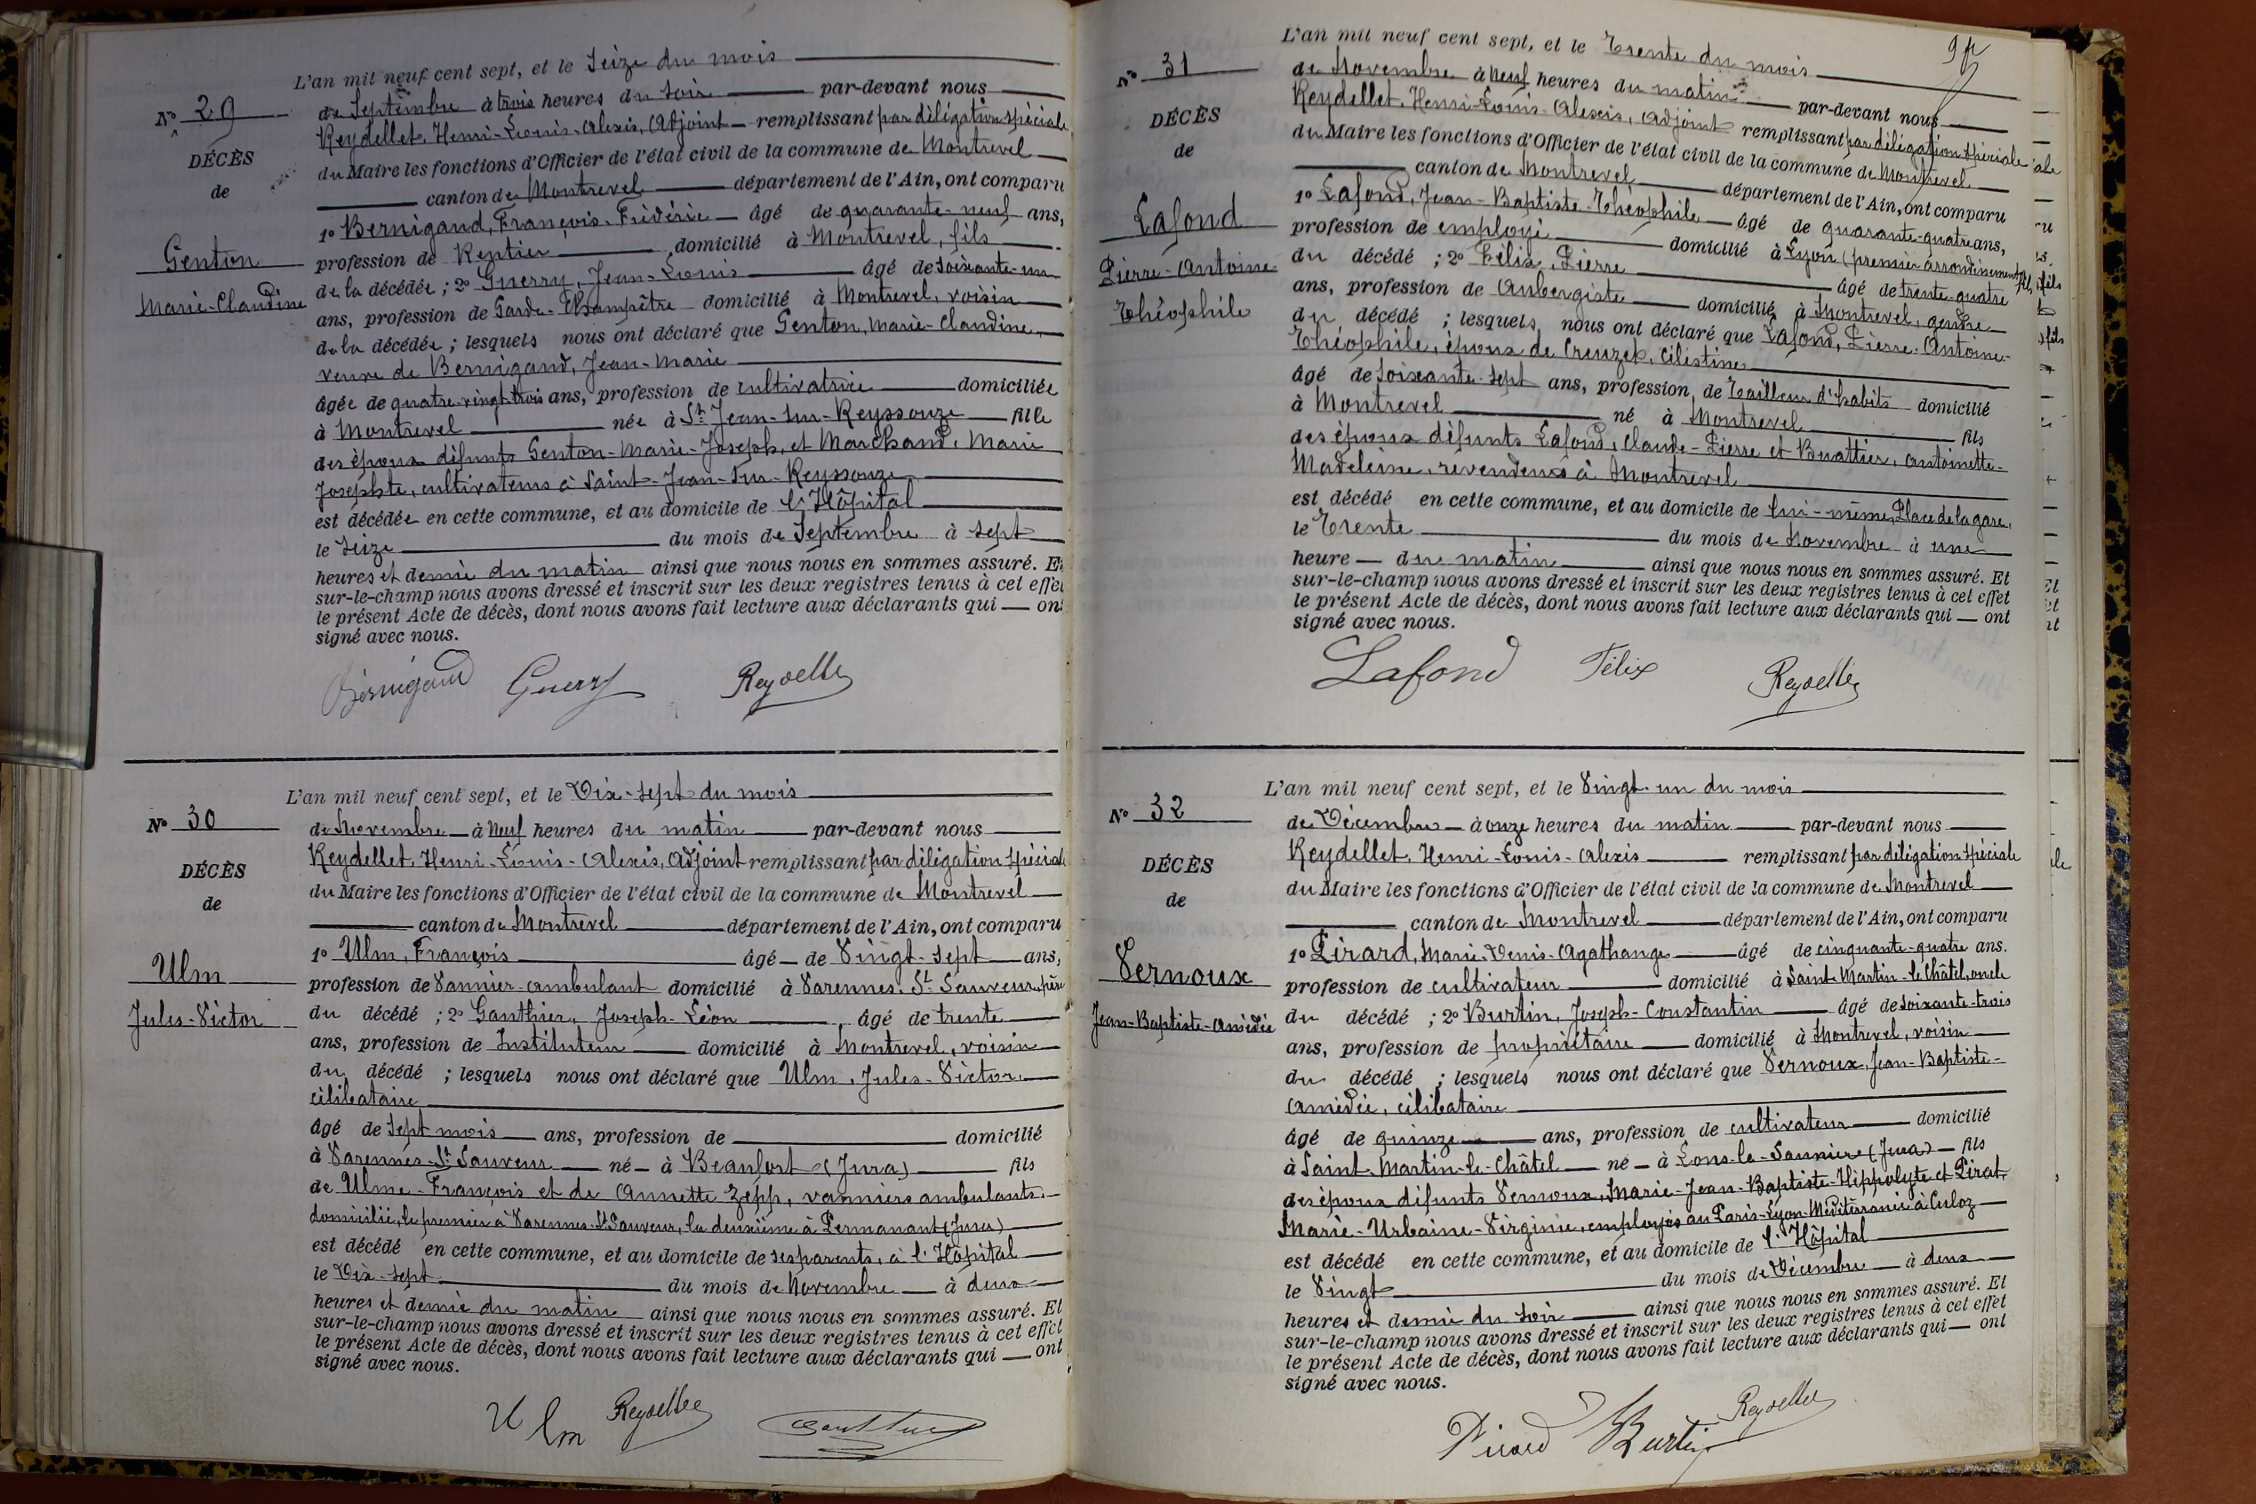 Nº 29
DÉCÈS
de
Genton
Marie-Claudine
L'an mil neuf cent sept, et le Seize du mois
de Septembre à trois heures du soir par-devant nous
Reydellet, Henri-Louis-Alexis, Adjoint remplissant par délégation spéciale
du Maire les fonctions d'Officier de l'état civil de la commune de Montrevel
canton de Montrevel département de l'Ain, ont comparu
1º Bernigaud, François-Frédéric âgé de quarante-neuf ans,
profession de Rentier domicilié à Montrevel, fils
de la décédée ; 2º Guerry, Jean-Louis âgé de soixante-un
ans, profession de Garde-Champêtre domicilié à Montrevel, voisin
de la décédée ; lesquels nous ont déclaré que Genton, Marie-Claudine,
veuve de Bernigaud, Jean-Marie
âgée de quatre-vingt-trois ans, profession de cultivatrice domiciliée
à Montrevel née à St Jean-sur-Reyssouze fille
des époux défunts Genton-Marie-Joseph, et Marchand, Marie
Josephte, cultivateurs à Saint-Jean-sur-Reyssouze
est décédée en cette commune, et au domicile de l'Hôpital
le Seize du mois de Septembre à sept
heures et demie du matin ainsi que nous nous en sommes assuré. Et
sur-le-champ nous avons dressé et inscrit sur les deux registres tenus à cet effet
le présent Acte de décès, dont nous avons fait lecture aux déclarants qui ont
signé avec nous.
Bernigaud Guerry Reydellet
Nº 30
DÉCÈS
de
Ulm
Jules-Victor
L'an mil neuf cent sept, et le Dix-sept du mois
de Novembre à Neuf heures du matin par-devant nous
Reydellet, Henri-Louis-Alexis, Adjoint remplissant par délégation spéciale
du Maire les fonctions d'Officier de l'état civil de la commune de Montrevel
canton de Montrevel département de l'Ain, ont comparu
1º Ulm, François âgé de Vingt-sept ans,
profession de Vannier-ambulant domicilié à Varennes-St Sauveur, père
du décédé ; 2º Gauthier, Joseph-Léon âgé de trente
ans, profession de Instituteur domicilié à Montrevel, voisin
du décédé ; lesquels nous ont déclaré que Ulm, Jules-Victor,
célibataire
âgé de sept mois ans, profession de domicilié
à Varennes-St Sauveur né à Beaufort (Jura) fils
de Ulm-François et de Annette Zepp, vanniers ambulants,
domicilié, le premier à Varennes-St Sauveur, la deuxième à Permanant (Jura)
est décédé en cette commune, et au domicile de ses parents, à l'Hôpital
le Dix-sept du mois de Novembre à deux
heures et demie du matin ainsi que nous nous en sommes assuré. Et
sur-le-champ nous avons dressé et inscrit sur les deux registres tenus à cet effet
le présent Acte de décès, dont nous avons fait lecture aux déclarants qui ont
signé avec nous.
Ulm Reydellet Gauthier
Nº 31
DÉCÈS
de
Lafond
Pierre-Antoine
Théophile
L'an mil neuf cent sept, et le Trente du mois
de Novembre à Neuf heures du matin par-devant nous
Reydellet, Henri-Louis-Alexis, Adjoint remplissant par délégation spéciale
du Maire les fonctions d'Officier de l'état civil de la commune de Montrevel
canton de Montrevel département de l'Ain, ont comparu
1º Lafond, Jean-Baptiste-Théophile âgé de quarante-quatre ans,
profession de employé domicilié à Lyon (premier arrondissement) fils
du décédé ; 2º Félix, Pierre âgé de trente-quatre
ans, profession de Aubergiste domicilié à Montrevel, gendre
du décédé ; lesquels nous ont déclaré que Lafond, Pierre-Antoine-
Théophile, époux de Creuzet, Célestine
âgé de soixante-sept ans, profession de Tailleur d'habits domicilié
à Montrevel né à Montrevel fils
des époux défunts Lafond, Claude-Pierre et Buattier, Antoinette-
Madeleine, revendeurs à Montrevel
est décédé en cette commune, et au domicile de lui-même, Place de la gare,
le Trente du mois de Novembre à une
heure du matin ainsi que nous nous en sommes assuré. Et
sur-le-champ nous avons dressé et inscrit sur les deux registres tenus à cet effet
le présent Acte de décès, dont nous avons fait lecture aux déclarants qui ont
signé avec nous.
Lafond Félix Reydellet
Nº 32
DÉCÈS
de
Vernoux
Jean-Baptiste-Amédée
L'an mil neuf cent sept, et le Vingt-un du mois
de Décembre à onze heures du matin par-devant nous
Reydellet, Henri-Louis-Alexis remplissant par délégation spéciale
du Maire les fonctions d'Officier de l'état civil de la commune de Montrevel
canton de Montrevel département de l'Ain, ont comparu
1º Pirard, Marie-Denis-Agathange âgé de cinquante-quatre ans.
profession de cultivateur domicilié à Saint-Martin-le-Châtel, oncle
du décédé ; 2º Burtin, Joseph-Constantin âgé de soixante-trois
ans, profession de propriétaire domicilié à Montrevel, voisin
du décédé ; lesquels nous ont déclaré que Vernoux, Jean-Baptiste-
Amédée, célibataire
âgé de quinze ans, profession de cultivateur domicilié
à Saint-Martin-le-Châtel né à Lons-le-Saunier (Jura) fils
des époux défunts Vernoux, Marie-Jean-Baptiste-Hippolyte et Pirat,
Marie-Urbaine-Virginie, employés au Paris-Lyon-Méditerranée à Culoz
est décédé en cette commune, et au domicile de l'Hôpital
le Vingt du mois de Décembre à deux
heures et demie du soir ainsi que nous nous en sommes assuré. Et
sur-le-champ nous avons dressé et inscrit sur les deux registres tenus à cet effet
le présent Acte de décès, dont nous avons fait lecture aux déclarants qui ont
signé avec nous.
Pirard Burtin Reydellet